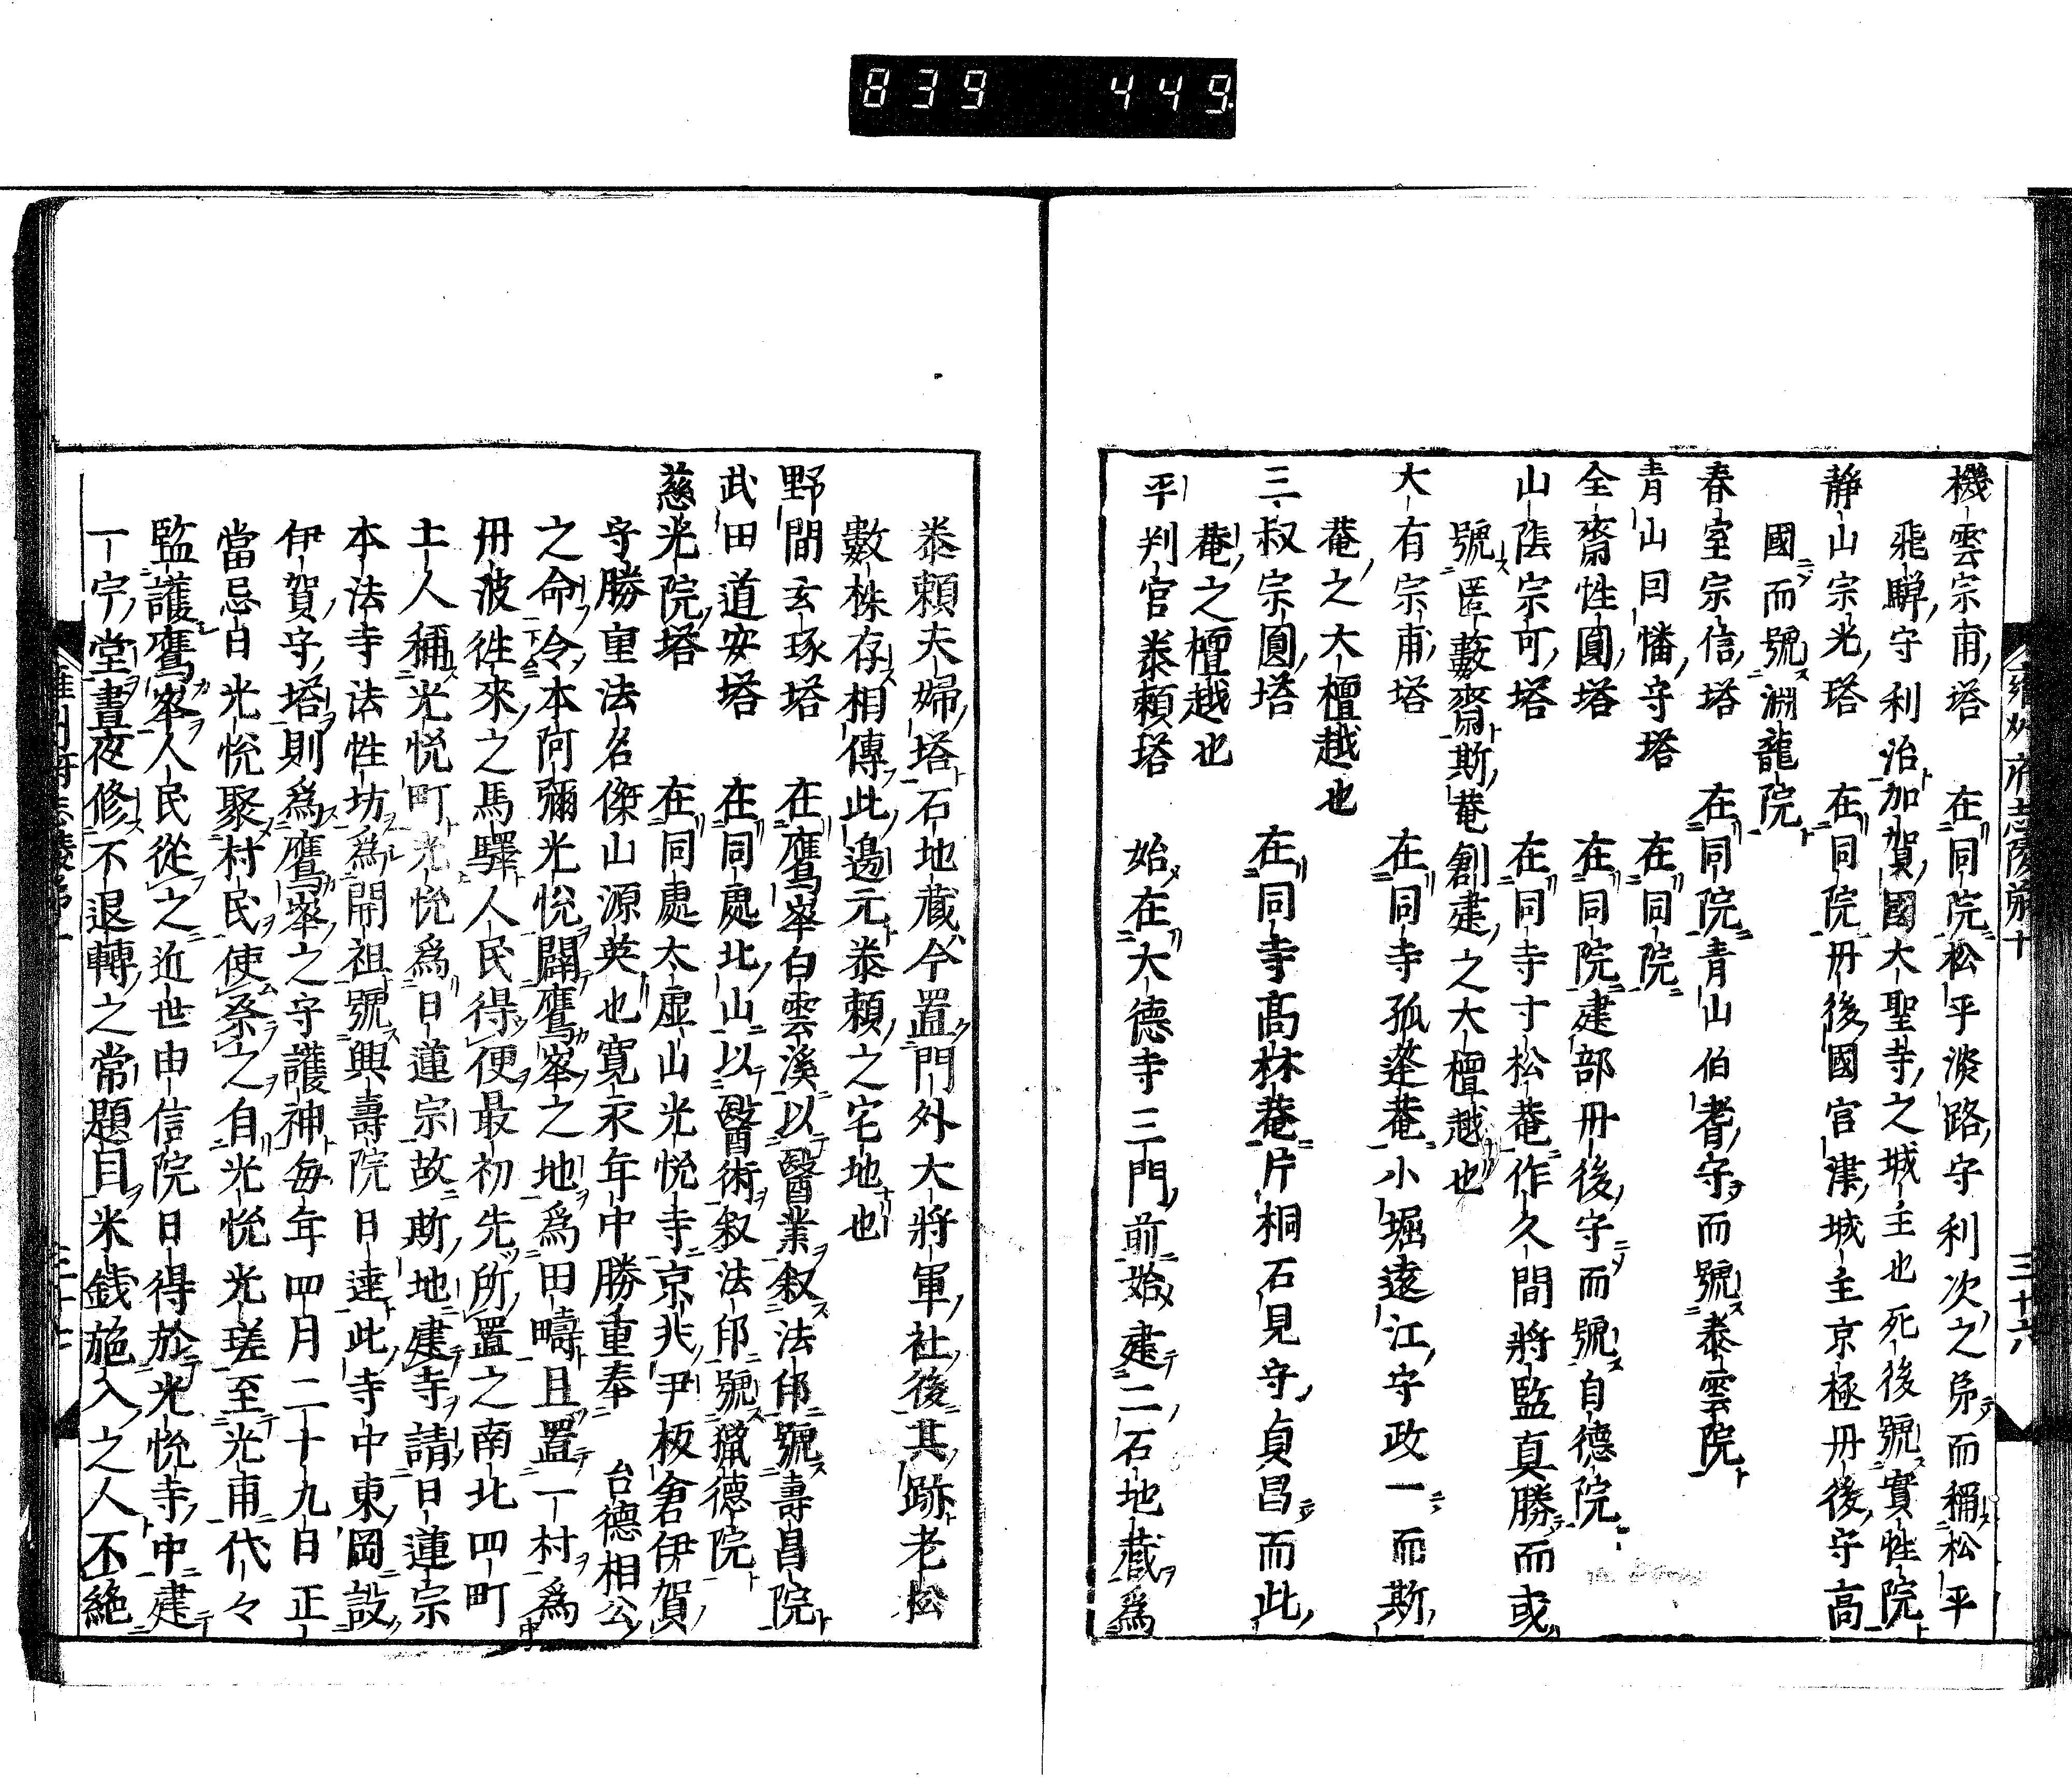 839 449
雍州府志陵第十 三十六
機雲宗甫塔 在同院松平淡路守利次之弟而稱松平
飛驒守利治加賀國大聖寺之城主也死後號實性院
靜山宗光塔 在同院丹後國宮津城主京極丹後守高
國而號淵龍院
春室宗信塔 在同院青山伯耆守而號泰雲院
青山因幡守塔 在同院
全齋性圓塔 在同院建部丹後守而號自德院
山隂宗可塔 在同寺寸松菴作久間將監真勝而或
號匿藪齋斯菴創建之大檀越也
大有宗甫塔 在同寺孤蓬菴小堀遠江守政一而斯
菴之大檀越也
三叔宗圓塔 在同寺高林菴片桐石見守貞昌而此
菴之檀越也
平判官泰頼塔 始在大德寺三門前始建二石地藏爲
泰頼夫婦塔石地藏今置門外大將軍社後其跡老松
數株存相傳此邊元泰頼之宅地也
野間玄琢塔 在鷹峯白雲溪以醫業叙法印號壽昌院
武田道安塔 在同處北山以醫術叙法印號獵德院
慈光院塔 在同處太虛山光悦寺京兆尹板倉伊賀
守勝重法名傑山源英也寛永年中勝重奉 台德相公
之命令本阿彌光悦闢鷹峯之地爲田疇且置一村爲
丹波徃來之馬驛人民得便最初先所置之南北四町
土人稱光悦町光悦爲日蓮宗故斯地建寺請日蓮宗
本法寺法性坊爲開祖號興壽院日達此寺中東岡設
伊賀守塔則爲鷹峯之守護神每年四月二十九日正
當忌日光悦聚村民使祭之自光悦光瑳至光甫代々
監護鷹峯人民從之近世由信院日得於光悦寺中建
一宇堂晝夜修不退轉之常題目米錢施入之人不絶